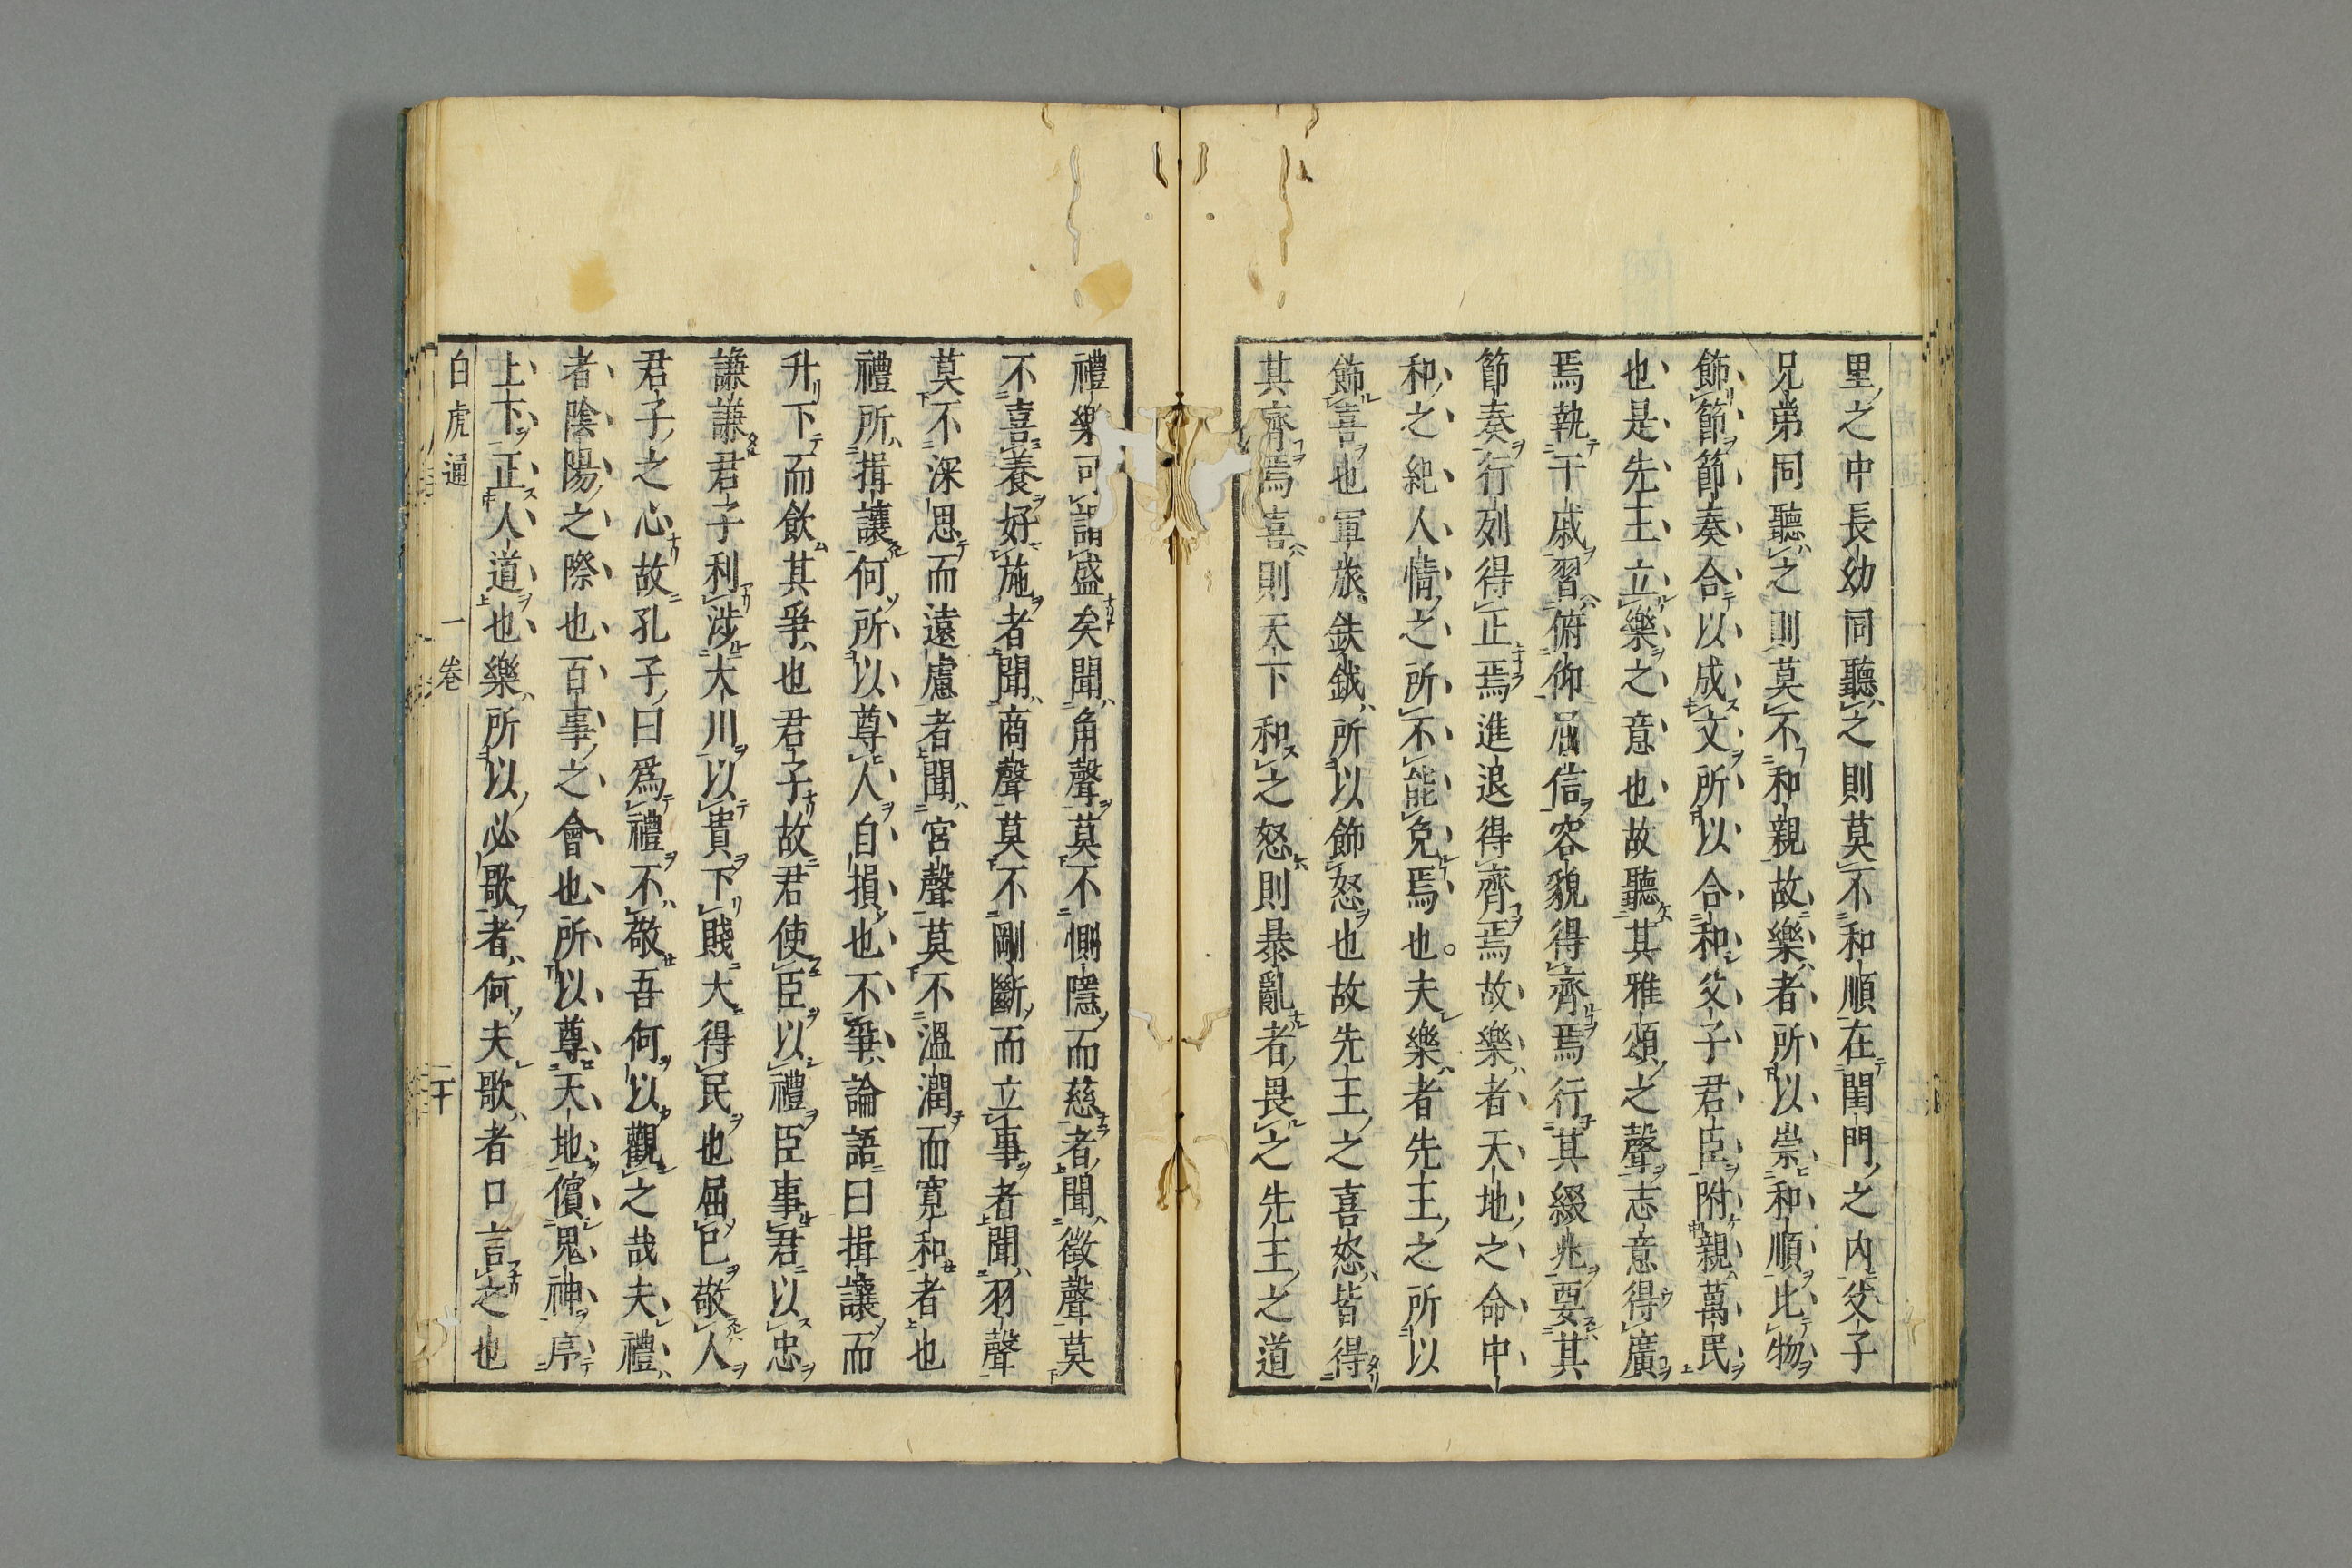 里之中長幼同聽之則莫不和順在閨門之内父子
兄弟同聽之則莫不和親故樂者所以崇和順比物
飾節節奏合以成文所以合和父子君臣附親萬民
也是先王立樂之意也故聽其雅頌之聲志意得廣
焉執干戚習俯仰屈信容貌得齊焉行其綴兆要其
節奏行列得正焉進退得齊焉故樂者天地之命中
和之紀人情之所不能免焉也。夫樂者先王之所以
飾喜也軍旅鈇鉞所以飾怒也故先王之喜怒皆得
其齊焉喜則天下和之怒則暴亂者畏之先王之道
禮樂可謂盛矣聞角聲莫不惻隱而慈者聞徵聲莫
不喜養好施者聞商聲莫不剛斷而立事者聞羽聲
莫不深思而遠慮者聞宮聲莫不溫潤而寬和者也
禮所揖讓何所以尊人自損也不爭論語曰揖讓而
升下而飲其爭也君子故君使臣以禮臣事君以忠
謙謙君子利涉大川以貴下賤大得民也屈已敬人
君子之心故孔子曰爲禮不敬吾何以觀之哉夫禮
者陰陽之際也百事之會也所以尊天地儐鬼神序
上下正人道也樂所以必歌者何夫歌者口言之也
白虎通 一卷 二十